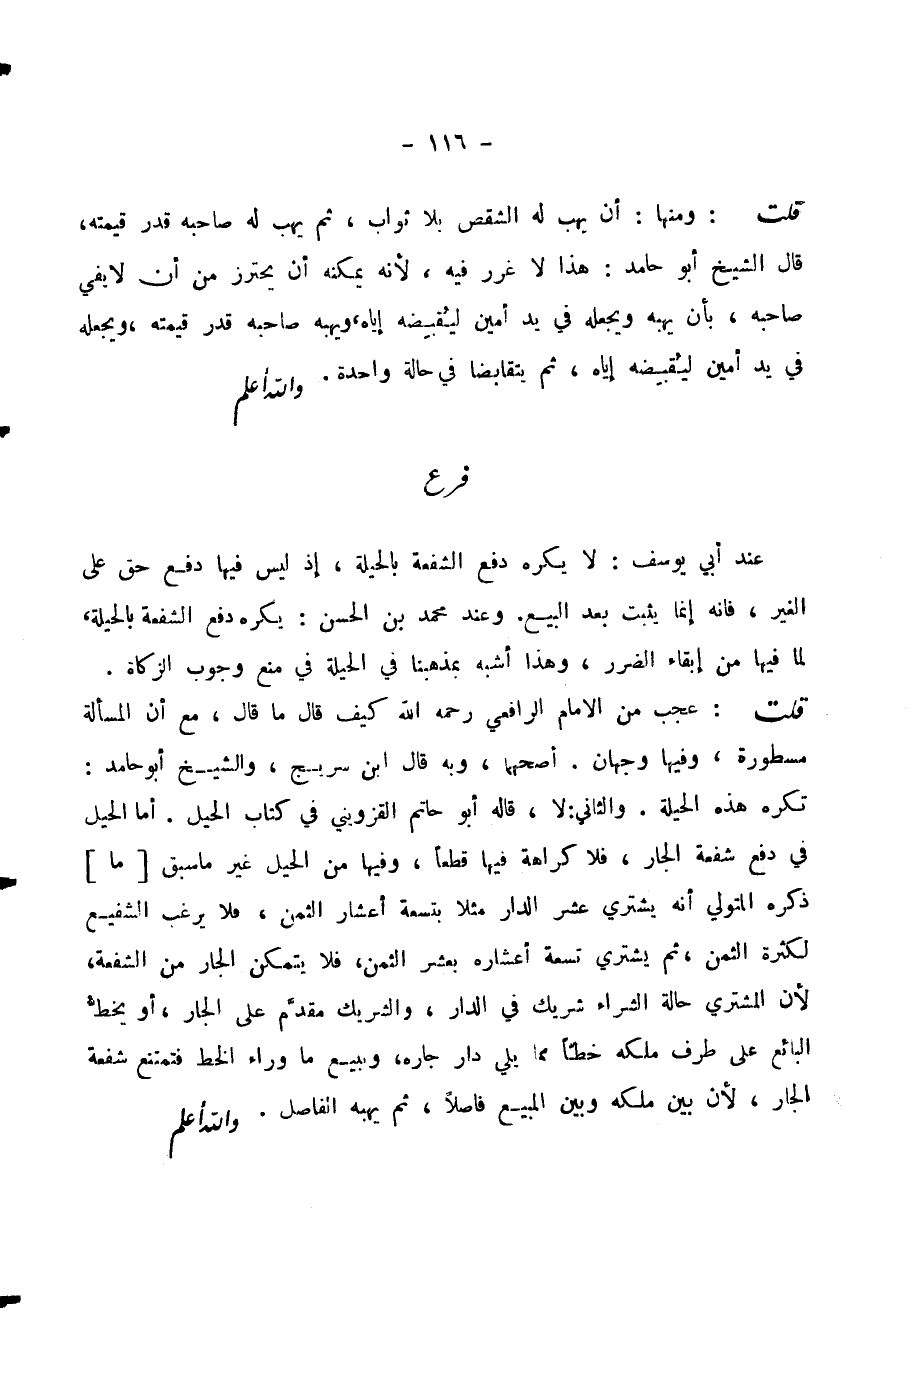 - ١١٦ -
قلت : ومنها : أن يهب له الشقص بلا ثواب ، ثم يهب له صاحبه قدر قيمته،
قال الشيخ أبو حامد : هذا لا غرر فيه ، لأنه يمكنه أن يحترز من أن لايفي
صاحبه ، بأن يهبه ويجعله في يد أمين ليُقبِضه إياه،ويهبه صاحبه قدر قيمته ،ويجعله
في يد أمين ليُقبِضه إياه ، ثم يتقابضا في حالة واحدة . والله أعلم
فرع
عند أبي يوسف : لا يكره دفع الشفعة بالحيلة ، إذ ليس فيها دفع حق على
الغير ، فانه إنما يثبت بعد البيع. وعند محمد بن الحسن : يكره دفع الشفعة بالحيلة،
لما فيها من إبقاء الضرر ، وهذا أشبه بمذهبنا في الحيلة في منع وجوب الزكاة .
قلت : عجب من الامام الرافعي رحمه الله كيف قال ما قال ، مع أن المسألة
مسطورة ، وفيها وجهان . أصحها ، وبه قال ابن سريج ، والشيخ أبوحامد :
تكره هذه الحيلة . والثاني:لا ، قاله أبو حاتم القزويني في كتاب الحيل . أما الحيل
في دفع شفعة الجار ، فلا كراهة فيها قطعاً ، وفيها من الحيل غير ماسبق [ ما ]
ذكره المتولي أنه يشتري عشر الدار مثلا بتسعة أعشار الثمن ، فلا يرغب الشفيع
لكثرة الثمن ،ثم يشتري تسعة أعشاره بعشر الثمن، فلا يتمكن الجار من الشفعة،
لأن المشتري حالة الشراء شريك في الدار ، والشريك مقدَّم على الجار ، أو يخط
البائع على طرف ملكه خطاً مما يلي دار جاره، ويبيع ما وراء الخط فتمتنع شفعة
الجار ، لأن بين ملكه وبين المبيع فاصلاً ، ثم يهبه الفاصل . والله أعلم